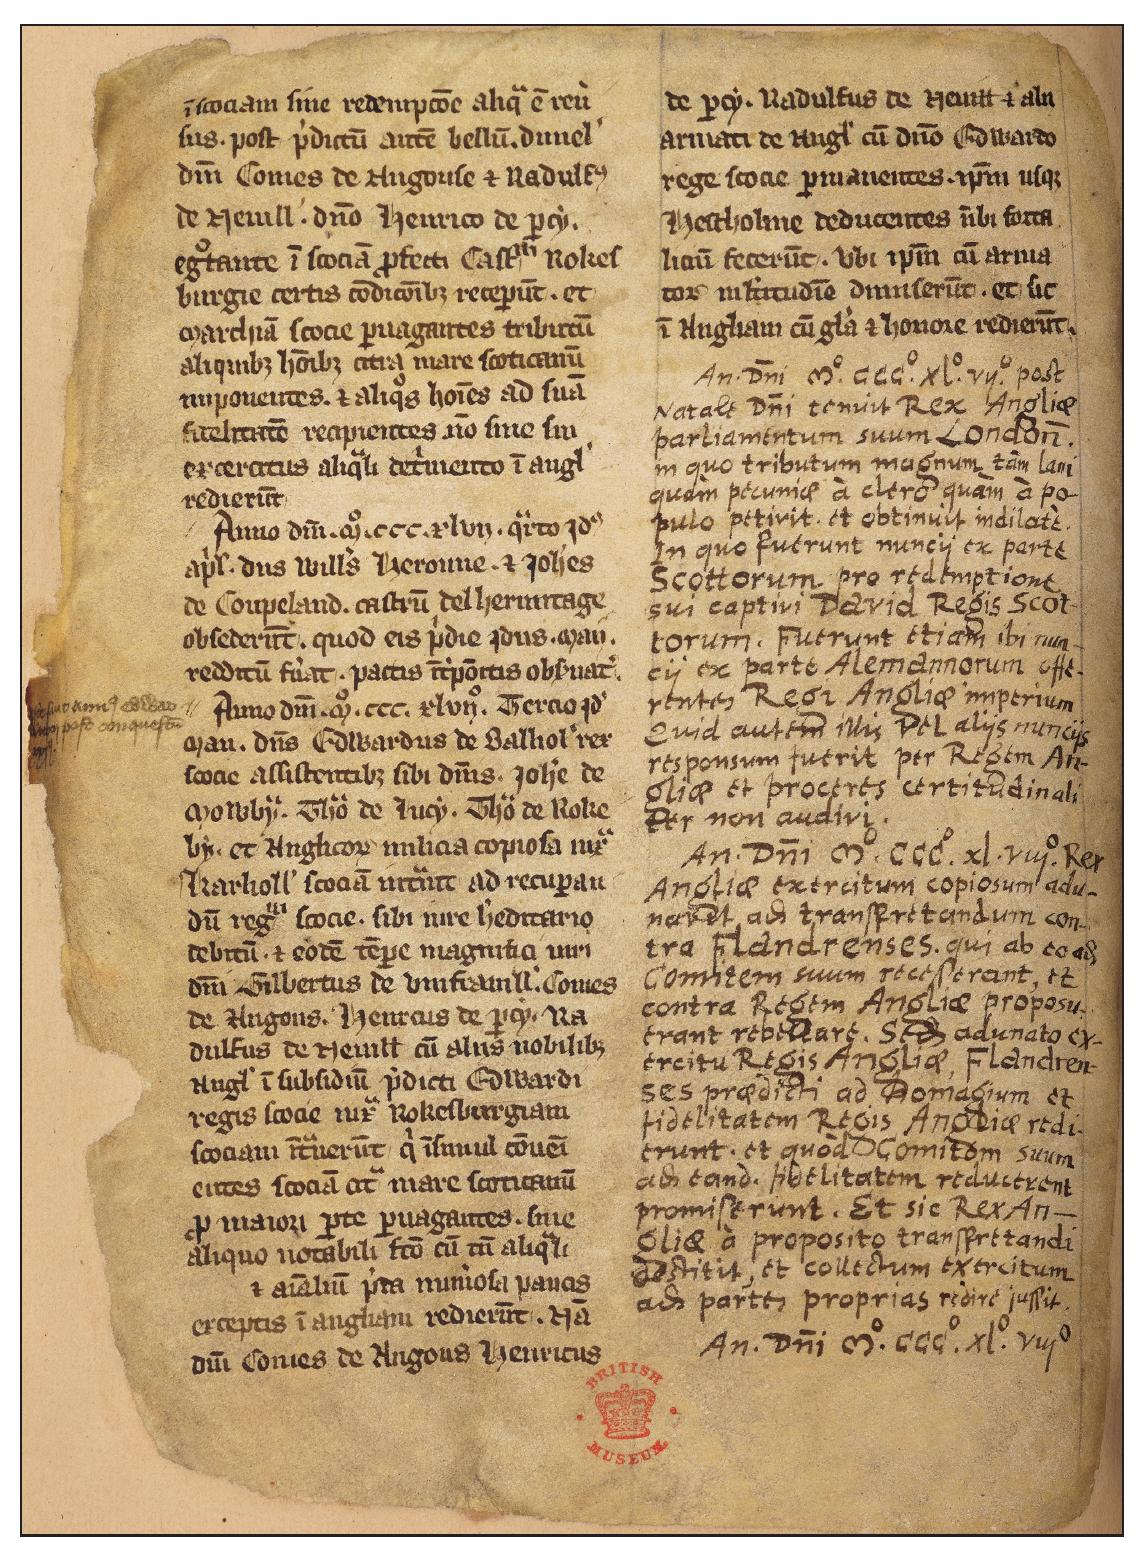 īscociam sine redempcōe aliq̄ ē reū
sus. post p̄dictū autē bellū. dunel'
dn̄i Comes de Angouse ⁊ Radulfꝰ
de Neuill'. dn̄o Henrico de ꝑcy.
egͦtante ī scociā ꝓfecti Castͬm Rokes
burgie certis cōdicōibꝫ receperūt. et
marchiā scocie ꝑuagantes tributū
aliquibꝫ hōibꝫ citra mare scoticanū
imponentes. ⁊ aliqͦs hoīes ad suā
fidelitatē recipientes. nō sine sui
exercitus aliq̄li det̓mento ī angl'
redierūt
Anno dn̄i. mͦ. ccc. xlvij. q̄rto Idꝰ
ap̓l'. dn̄s Will's Heronne. ⁊ Joh̄es
de Coupeland. castrū del hermitage
obsederūt. quod eis p̄die Idus. Maii.
redditū fūat. pactis
Anno dn̄i. mͦ. ccc. xlvijͦ. Tercio Id'
Maii. dn̄s Edwardus de Balliol' rex
scocie assistentibꝫ sibi dn̄is. Joh̄e de
MowbῘ. Thͦ de Lucy. Thͦ de Roke
by. et Anglicoꝝ milicia copiosa iuxͣ
Karlioll' scociā int̄uit ad recuperan
dū regͫ scocie. sibi iure h̓editario
debitū. ⁊ eodē tēꝑe magnifici uiri
dn̄i Gilbertus de vmframill'. Comes
de Angous. Henricus de ꝑcy. Ra
dulfus de Neuill cū aliis nobilibꝫ
Angl' ī subsidiū p̄dicti Edwardi
regis scocie iuxͣ Rokesburgiam
scociam īt̄uerūt q̓ īsimul cōueī
entes scociā citͣ mare scoticanū
ꝓ maiori ꝑte ꝑuagantes. sine
aliquo notabili fc̄o cū tn̄ aliq̄li
⁊ aīaliū p̄da numosa paucis
exceptis ī angliam redierūt. Nā
dn̄i Comes de Angous Henricus
de ꝑcy. Radulfus de Neuill ⁊ alii
armati de Angl' cū dn̄o Edwardo
rege scocie ꝑmanentes. ip̄m usqꝫ
Hestholme deducentes n̄ibi forta
liciū fecerūt. Vbi ip̄m cū arma
toꝝ ml̓titudīe dimiserūt. et sic
ī Angliam cū gl̓a ⁊ honore redierūt.
An. Dn̄i Mͦ. CCCͦ. xlͦ. vijͦ. post
Natale Dn̄i tenuit Rex Angliæ
parliamentum suum Londoñ.
in quo tributum magnum tàm lani
quàm pecuniæ à clero quàm à po-
pulo petivit. et obtinuit indilatè.
In quo fuerunt nuncij ex parte
Scottorum pro redemptione
sui captivi David Regis Scot-
torum. Fuerunt etiam ibi nun-
cij ex parte Alemannorum offe-
rentes Regi Angliæ imperium
Quid autem illis vel alijs nuncijs
responsum fuerit per Regem An-
gliæ et proceres certitudinali
ter non audivi.
An. Dn̄i Mͦ. CCCͦ. xl. viijͦ. Rex
Angliæ exercitum copiosum adu-
navit ad transfretandum con-
tra Flandrenses. qui ab eo ad
Comitem suum recesserant, et
contra Regem Angliæ proposu-
erant rebellare. Sed adunato ex-
ercitu Regis Angliæ, Flandren-
ses prædicti ad Homagium et
fidelitatem Regis Angliæ redi-
erunt. et quòd Comitem suum
ad eand. fidelitatem reducerent
promiserunt. Et sic Rex An—
gliæ à proposito transfretandi
destitit, et collectum exercitum
ad partes proprias redire jussit.
An. Dn̄i Mͦ. CCCͦ. xl. viijͦ
post conquestū
BRITISH
MUSEUM